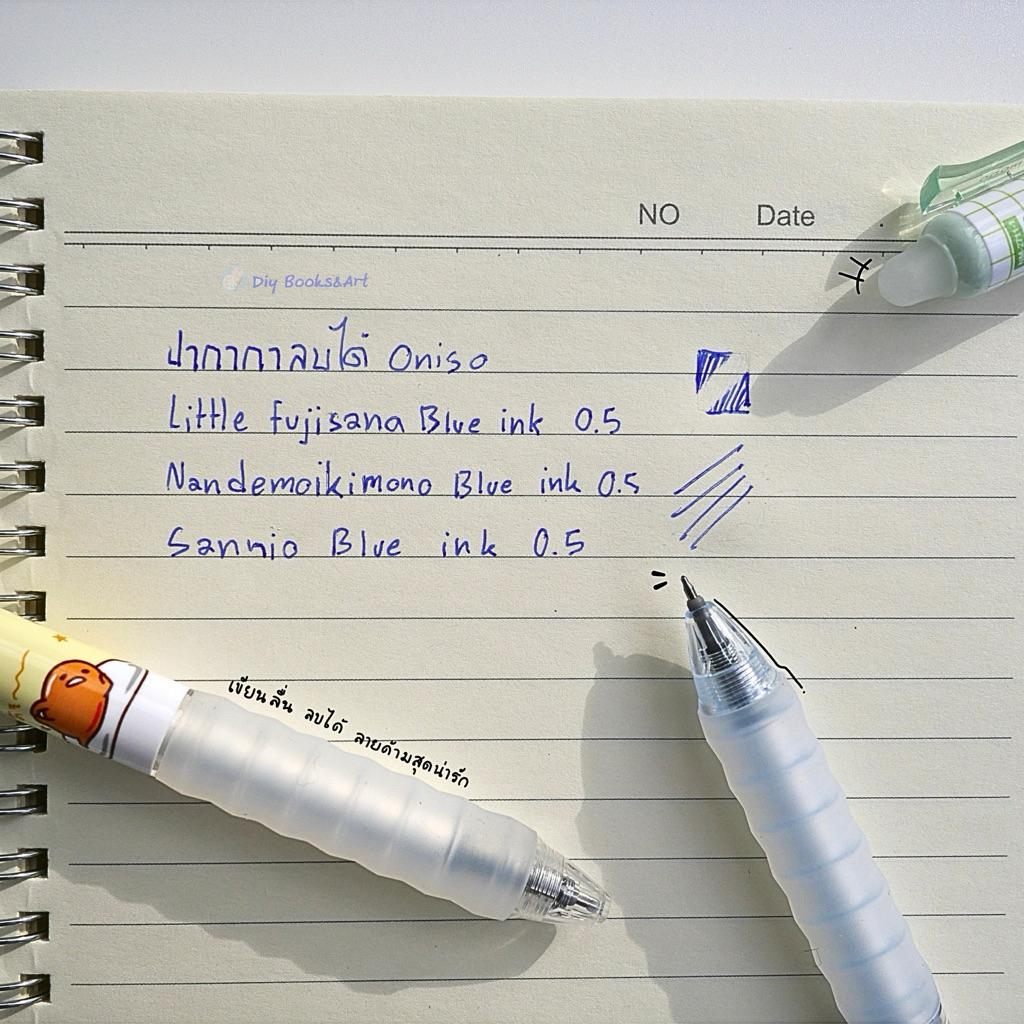 NO Date
Diy Books&Art
ปากกาลบได้ Oniso
Little fujisana Blue ink 0.5
Nandemoikimono Blue ink 0.5
Sanrio Blue ink 0.5
เขียนลื่น ลบได้ ลายด้ามสุดน่ารัก